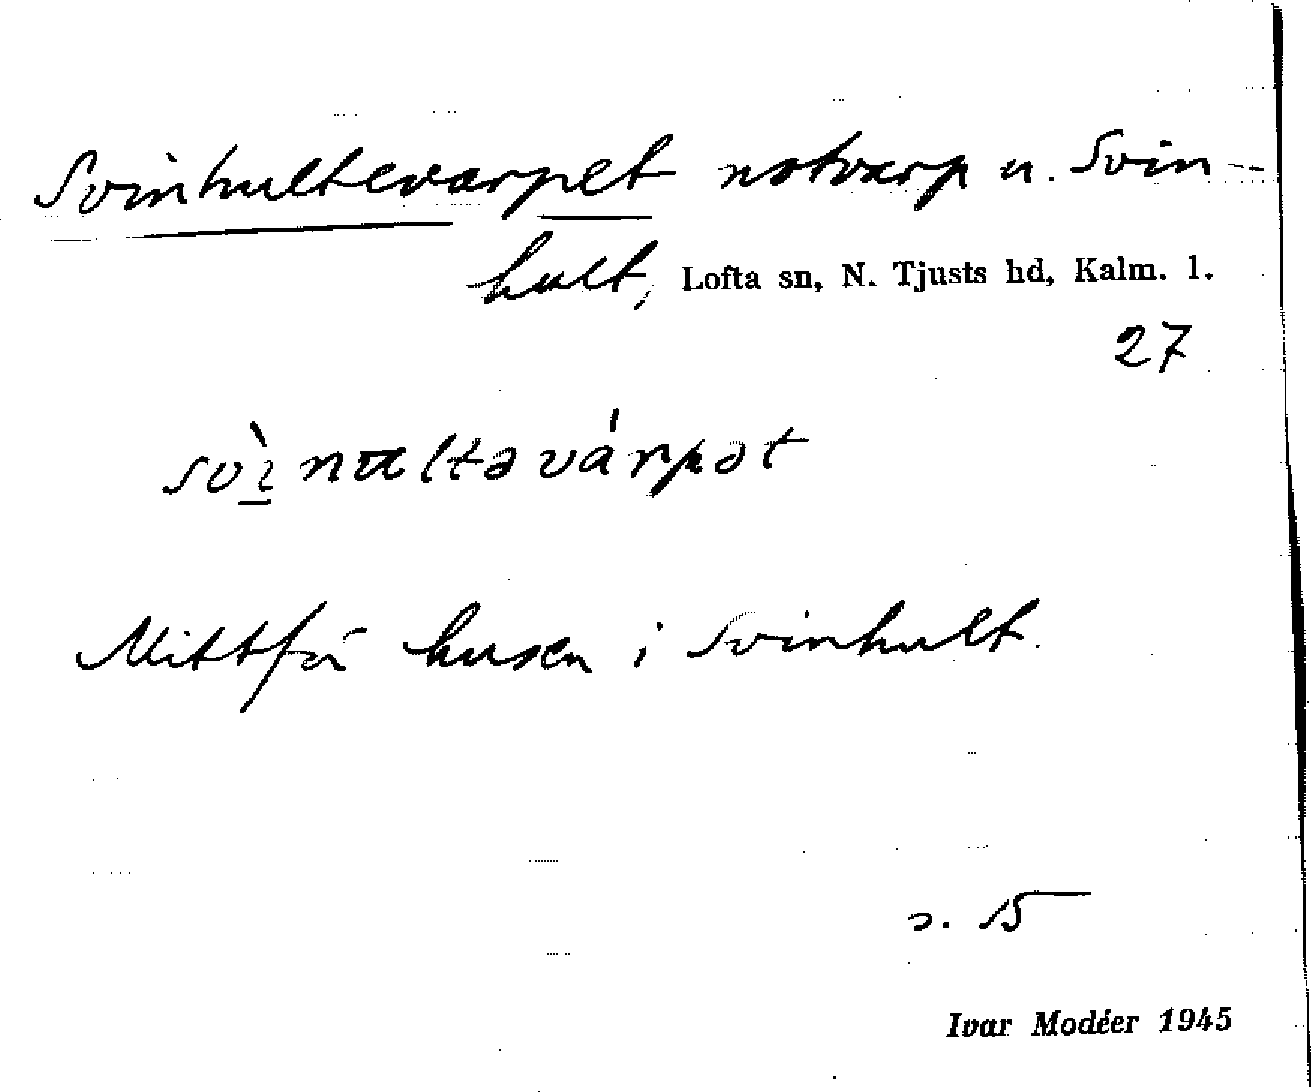 Svinhultevarpet notvarp u. Svin-
hult, Lofta sn, N. Tjusts hd, Kalm. l.
27
svì̱nultəvárpət
Mittför husen i Svinhult.
s. 15
Ivar Modéer 1945